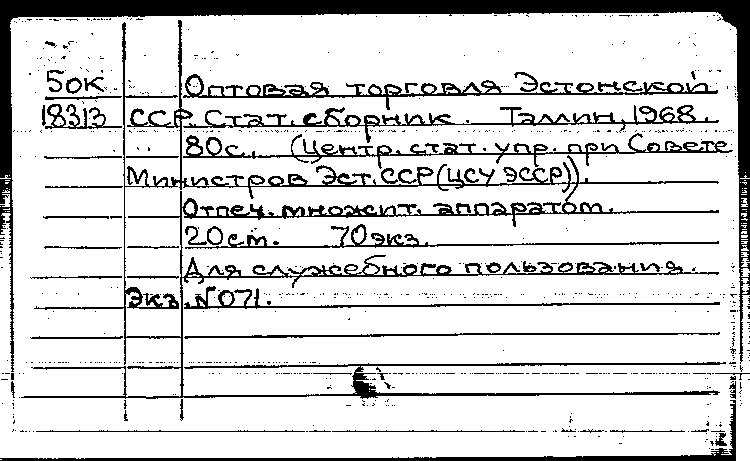 5ок Оптовая торговля Эстонской
18313 ССР. Стат. сборник. Таллин, 1968.
80с. (Центр. стат. упр. при Совете
Министров Эст.ССР (ЦСУ ЭССР)).
Отпеч. множит. аппаратом.
20см. 70экз.
Для служебного пользования.
Экз. №071.